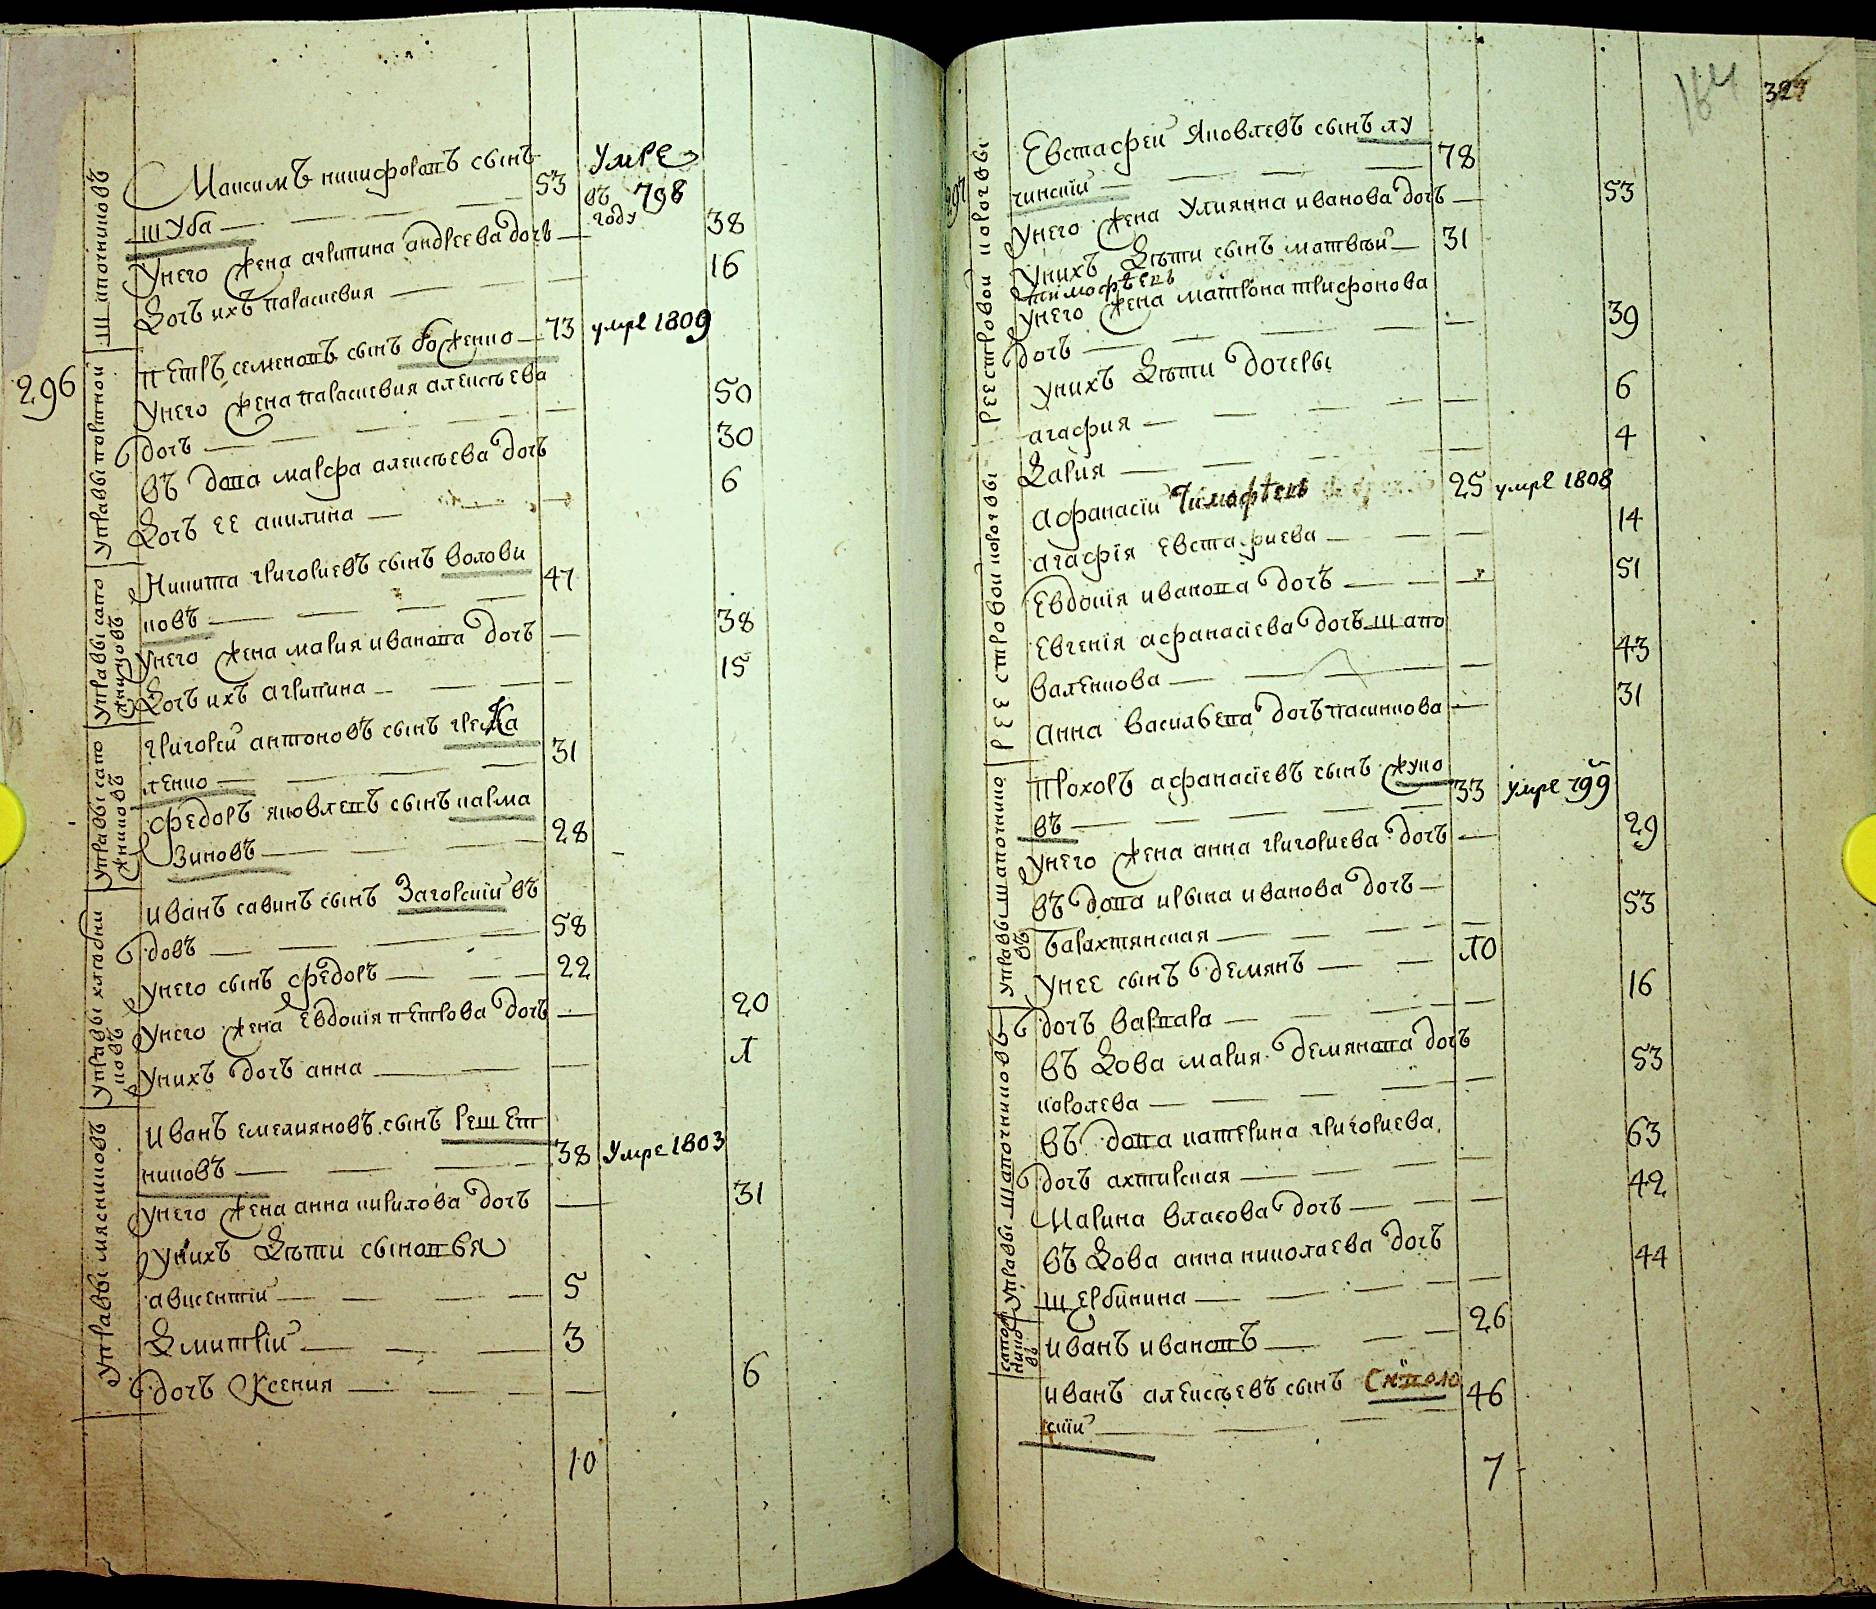 Максимъ никифоровъ сынъ
шуба 53 умре въ 798 году
у него жена агрипина андреева дочь 38
дочь ихъ параскевия 16
296
управы портной
петръ семеновъ сынъ боженко 73 умре 1809
у него жена параскевия алексѣева
дочь 50
вдова марфа алексѣева дочь 30
дочь ее акилина 6
управы сапожниковъ
Никита григориевъ сынъ волови
ковъ 47
у него жена мария иванова дочь 38
дочь ихъ агрипина 15
управы сапожниковъ
григорей антоновъ сынъ
ленко 31
федоръ яковлевъ сынъ карма
зиновъ 28
управы хлѣбниковъ
иванъ савинъ сынъ Загорский въ
довъ 58
у него сынъ федоръ 22
у него жена евдокія петрова дочь 20
у нихъ дочь анна
управы мясниковъ
Иванъ емелияновъ сынъ решет
никовъ 38 умре 1803
у него жена анна кирилова дочь 31
у нихъ дѣти сыновья
авксентій 5
дмитрій 3
дочь Ксения 6
10
164 327
297
реестровой
Евстафей яковлевъ сынъ лу
чинский 78
у него жена улиянна иванова дочь 53
у нихъ дѣти сынъ матвѣй 31
тимофѣевъ
у него жена матрона трифонова
дочь 39
у нихъ дѣти дочеры
агафия 6
дария 4
реестровой
афанасій тимофѣевъ 25 умре 1808
агафія евстафиева 14
евдокія иванова дочь 51
евгенія афанасіева дочь шапо
валенкова 43
анна васильева дочь пасинкова 31
управы шапочниковъ
прохоръ афанасіевъ сынъ жуко
въ 33 умре 799
у него жена анна григориева дочь 29
вдова ирына иванова дочь
барахтянская 53
у нее сынъ демянъ 10
дочь варвара 16
управы шапочниковъ
вдова мария демянова дочь
королева 53
вдова катерина григориева
дочь ахтирская 63
Марина власова дочь 42
вдова анна николаева дочь
щербинина 44
иванъ ивановъ 26
иванъ алексѣевъ сынъ
скій 46
7